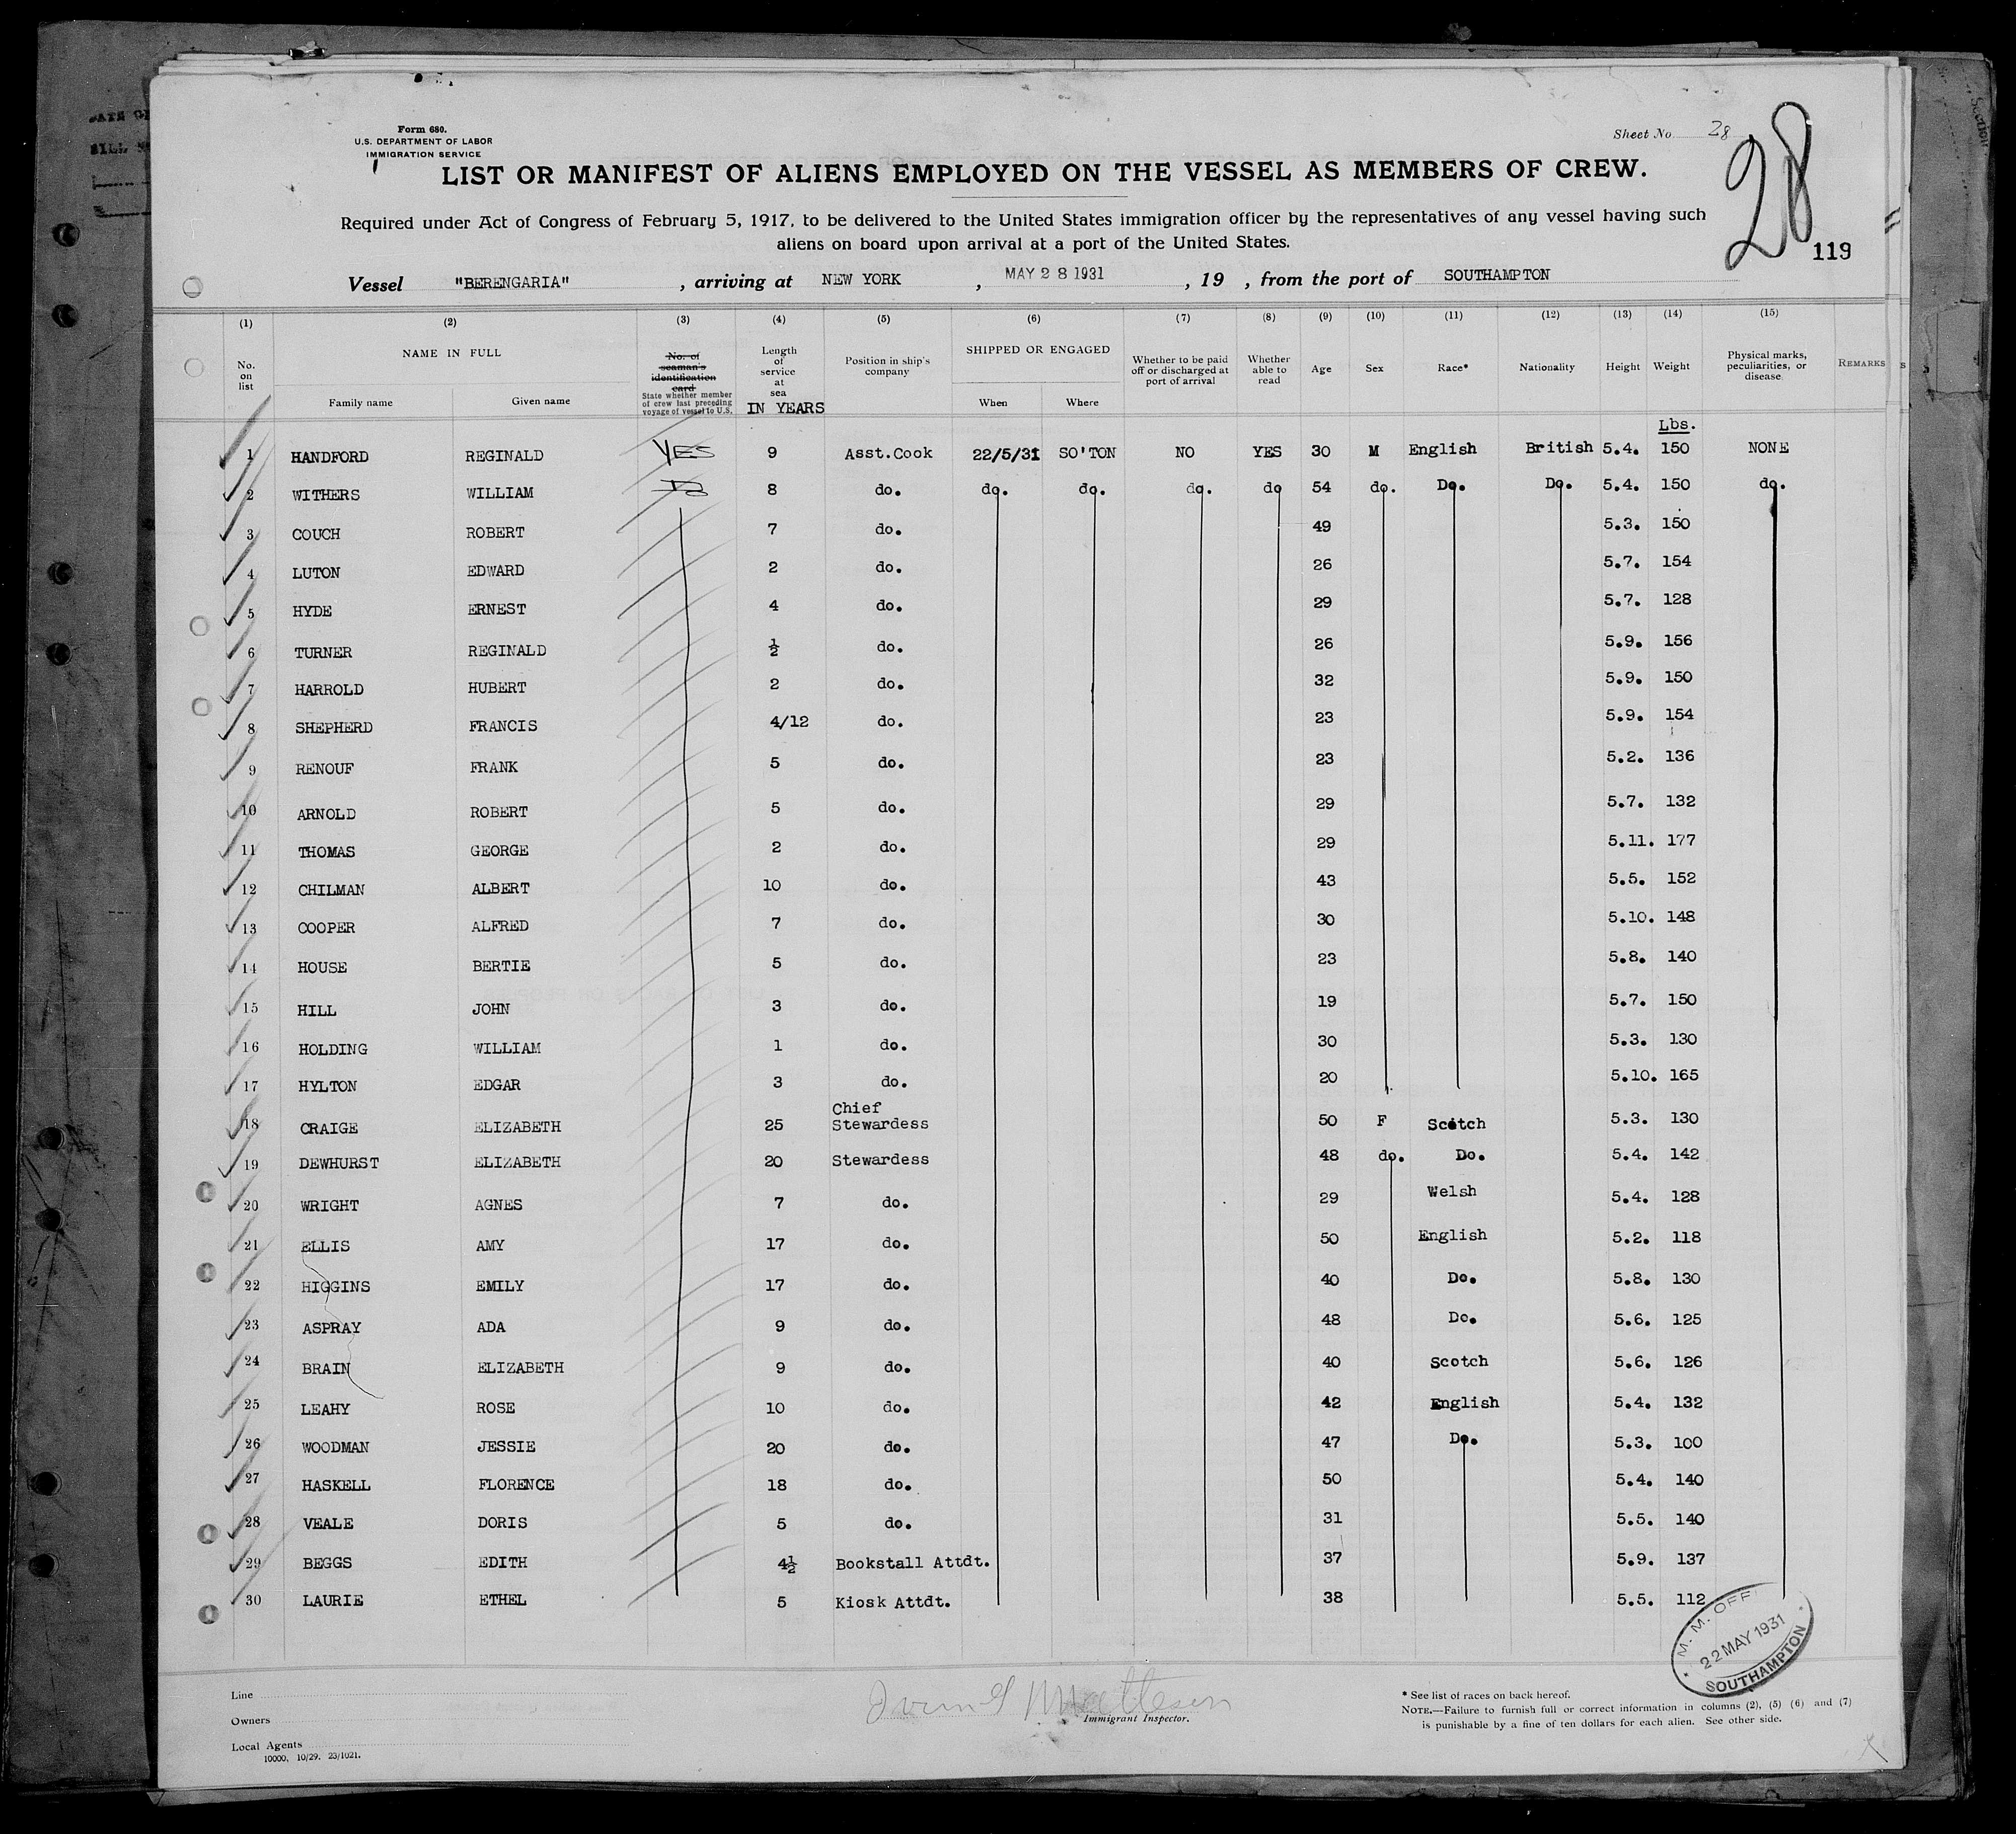 Form 680.
U.S. DEPARTMENT OF LABOR
IMMIGRATION SERVICE
Sheet No. 28
28
119
LIST OR MANIFEST OF ALIENS EMPLOYED ON THE VESSEL AS MEMBERS OF CREW.
Required under Act of Congress of February 5, 1917, to be delivered to the United States immigration officer by the representatives of any vessel having such
aliens on board upon arrival at a port of the United States.
Vessel "BERENGARIA", arriving at NEW YORK, MAY 28 1931, 19 , from the port of SOUTHAMPTON
(1) (2) (3) (4) (5) (6) (7) (8) (9) (10) (11) (12) (13) (14) (15)
No. on list NAME IN FULL Family name Given name No. of seaman's identification card State whether member of crew last preceding voyage of vessel to U.S. Length of service at sea IN YEARS Position in ship's company SHIPPED OR ENGAGED When Where Whether to be paid off or discharged at port of arrival Whether able to read Age Sex Race* Nationality Height Weight Physical marks, peculiarities, or disease REMARKS
Lbs.
1 HANDFORD REGINALD YES 9 Asst.Cook 22/5/31 SO'TON NO YES 30 M English British 5.4. 150 NONE
2 WITHERS WILLIAM Do 8 do. do. do. do. do 54 do. Do. Do. 5.4. 150 do.
3 COUCH ROBERT 7 do. 49 5.3. 150
4 LUTON EDWARD 2 do. 26 5.7. 154
5 HYDE ERNEST 4 do. 29 5.7. 128
6 TURNER REGINALD ½ do. 26 5.9. 156
7 HARROLD HUBERT 2 do. 32 5.9. 150
8 SHEPHERD FRANCIS 4/12 do. 23 5.9. 154
9 RENOUF FRANK 5 do. 23 5.2. 136
10 ARNOLD ROBERT 5 do. 29 5.7. 132
11 THOMAS GEORGE 2 do. 29 5.11. 177
12 CHILMAN ALBERT 10 do. 43 5.5. 152
13 COOPER ALFRED 7 do. 30 5.10. 148
14 HOUSE BERTIE 5 do. 23 5.8. 140
15 HILL JOHN 3 do. 19 5.7. 150
16 HOLDING WILLIAM 1 do. 30 5.3. 130
17 HYLTON EDGAR 3 do. 20 5.10. 165
18 CRAIGE ELIZABETH 25 Chief Stewardess 50 F Scotch 5.3. 130
19 DEWHURST ELIZABETH 20 Stewardess 48 do. Do. 5.4. 142
20 WRIGHT AGNES 7 do. 29 Welsh 5.4. 128
21 ELLIS AMY 17 do. 50 English 5.2. 118
22 HIGGINS EMILY 17 do. 40 Do. 5.8. 130
23 ASPRAY ADA 9 do. 48 Do. 5.6. 125
24 BRAIN ELIZABETH 9 do. 40 Scotch 5.6. 126
25 LEAHY ROSE 10 do. 42 English 5.4. 132
26 WOODMAN JESSIE 20 do. 47 Do. 5.3. 100
27 HASKELL FLORENCE 18 do. 50 5.4. 140
28 VEALE DORIS 5 do. 31 5.5. 140
29 BEGGS EDITH 4½ Bookstall Attdt. 37 5.9. 137
30 LAURIE ETHEL 5 Kiosk Attdt. 38 5.5. 112
M. M. OFF.
22 MAY 1931
SOUTHAMPTON
Line
Owners
Local Agents
10000, 10/29. 23/1021.
Immigrant Inspector.
* See list of races on back hereof.
NOTE.—Failure to furnish full or correct information in columns (2), (5) (6) and (7)
is punishable by a fine of ten dollars for each alien. See other side.